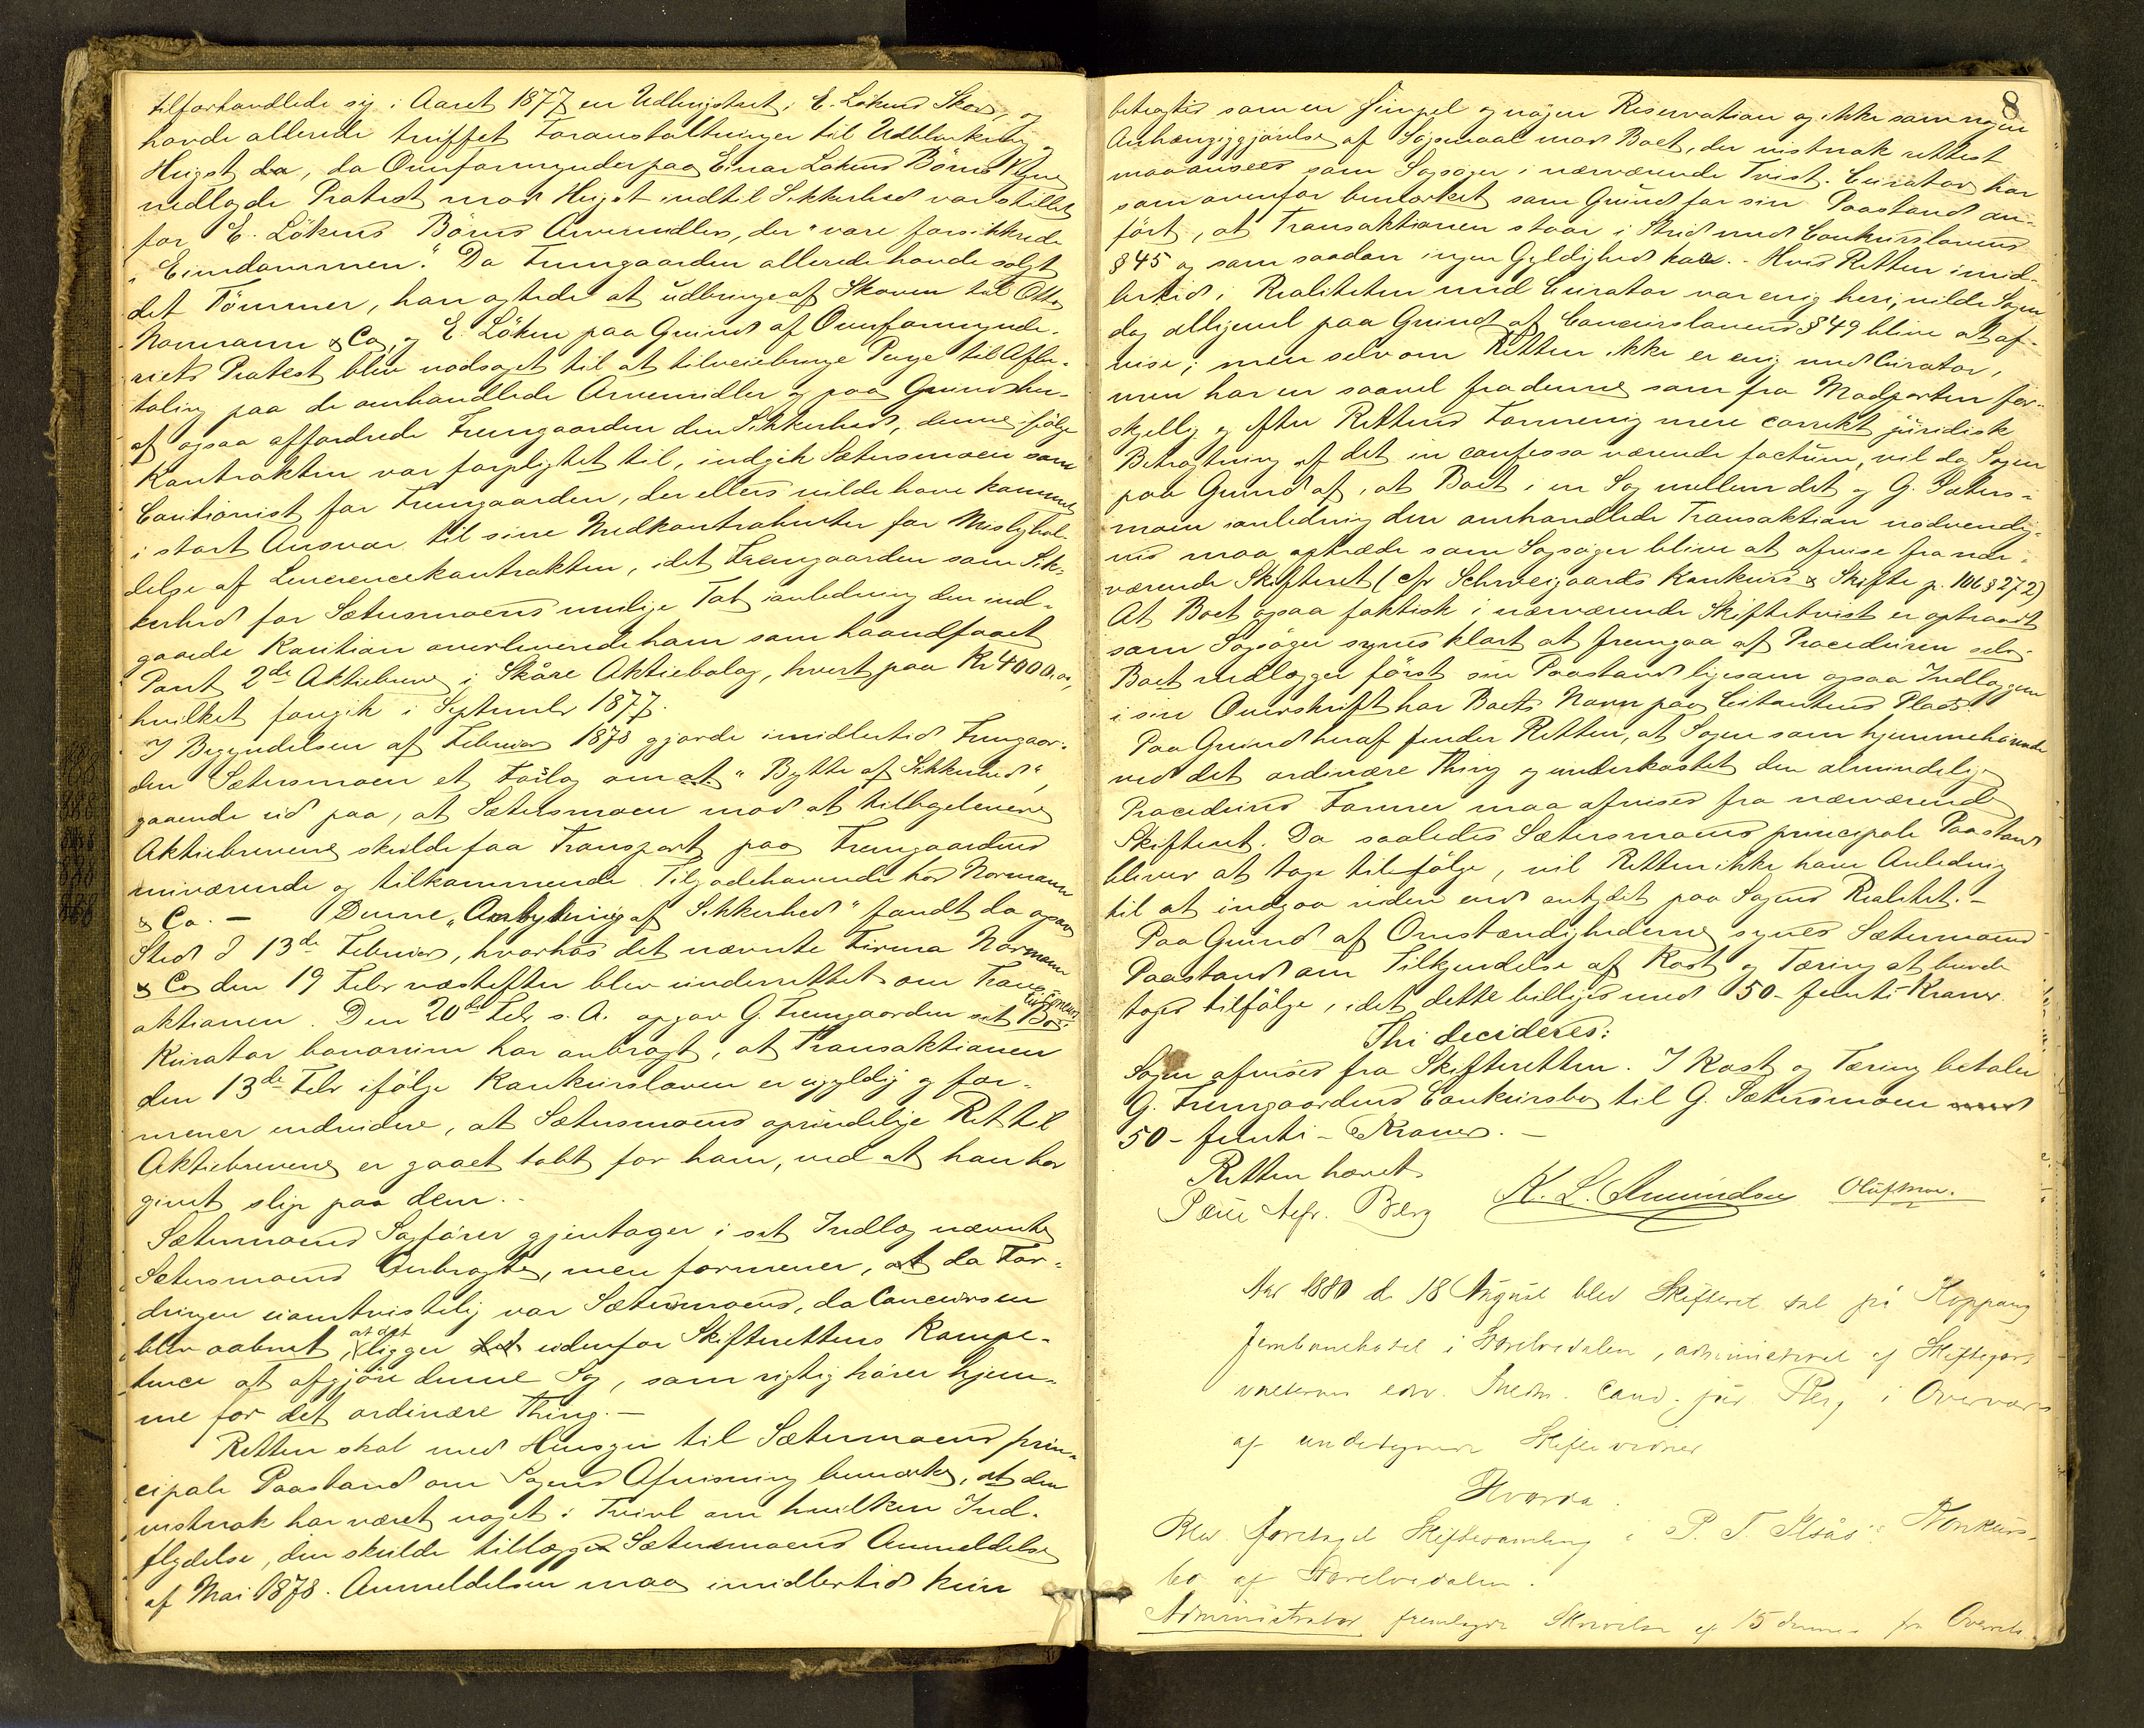 tilforhandlede sig i Aaret 1877 en Udbringstret i E. Løkens Skov, og
havde allerede truffet Foranstaltninger til Udblinkning og
Hugst da, da Overformynder paa Einar Løkens Børns Vegne
nedlagde Protest mod Hugst indtil Sikkerhed var stillet
for E. Løkens Børns Arvemidler, der "vare forsikkrede
i Eiendommen." Da Fremgaarden allerede havde solgt
det Tømmer, han agtede at udbringe af Skoven til Otto
Normann & Co, og E. Løken paa Grund af Overformynde-
riets Protest blev nødsaget til at tilveiebringe Penge til Afbe-
taling paa de omhandlede Arvemidler og paa Grund her-
af ogsaa affordrede Fremgaarden den Sikkerhed, denne ifølge
Kontrakten var forpligtet til, indgik Sætersmoen som
Cautionist for Fremgaarden, der ellers vilde have kommet
i stort Ansvar til sine Medkontrahenter for Misligehol-
delse af Leverencekontrakten, idet Fremgaarden som Sik-
kerhed for Sætersmoens mulige Tab i anledning den ind-
gaaede Kaution overleverede ham som haandfaaet
Pant 2de Aktiebreve i Skåre Aktiebolag, hvert paa Kr 4000,00,
hvilket foregik i September 1877.
I Begyndelsen af Februar 1878 gjorde imidlertid Fremgaar-
den Sætersmoen et Forslag om at "Bytte af Sikkerhed",
gaaende ud paa, at Sætersmoen mod at tilbagelevere
Aktiebrevene skulde faa Transport paa Fremgaardens
nuværende og tilkommende Tilgodehavende hos Normann
& Co. — Denne "Ombytning af Sikkerhed" fandt da ogsaa
Sted d 13de Februar, hvorhos det nævnte Firma Normann
& Co den 19 Febr næstefter blev underrettet om Trans-
aktionen. Den 20de Febr s. A. opgav G. Fremgaarden sit Bo.
Kurator bonorum har anbragt, at Transaktionen
den 13de Febr ifølge Konkursloven er ugyldig og for-
mener endvidere, at Sætersmoens oprindelige Ret til
Aktiebrevene er gaaet tabt for ham, ved at han har
givet slip paa dem. -
Sætersmoens Sagfører gjentager i sit Indlæg nævnte
Sætersmoens Anbragte, men formener, at da For-
dringen uomtvistelig var Sætersmoens, da Concursen
blev aabnet, at det ligger det udenfor Skifterettens Kompe-
tence at afgjøre denne Sag, som rigtig hører hjem-
me for det ordinære Thing. —
Retten skal med Hensyn til Sætersmoens prin-
cipale Paastand om Sagens Afvisning bemærke, at den
vistnok har været noget i Tvivl om hvilken Ind-
flydelse, der skulde tillægges Sætersmoens Anmeldelse
af Mai 1878. Anmeldelsen maa imidlertid kun
8
betragtes som en simpel og nøgen Reservation og ikke som nogen
Anhængiggjørelse af Søgsmaal mod Boet, der vistnok rettest
maa ansees som Sagsøger i nærværende Tvist. Curator har
som ovenfor bemærket som Grund for sin Paastand an-
ført, at Transaktionen staar i Strid med Conkurslovens
§ 45 og som saadan ingen Gyldighed har. - Hvis Retten imid-
lertid i Realiteten med Curator var enig heri, vilde Sagen
dog alligevel paa Grund af Concurslovens § 49 blive at af-
vise; men selv om Retten ikke er enig med Curator,
men har en saavel fra denne som fra Modparten for-
skjellig og efter Rettens Formening mere correkt juridisk
Betragtning af det in confesso værende factum, vil dog Sagen
paa Grund af, at Boet i en Sag mellem det og G. Sæters-
moen i anledning den omhandlede Transaktion nødvendig-
vis maa optræde som Sagsøger blive at afvise fra nær-
værende Skifteret (cfr Schweigaards Konkurs & Skifte p. 106 § 272)
At Boet ogsaa faktisk i nærværende Skiftetvist er optraadt
som Sagsøger synes klart at fremgaa af Proceduren selv.
Boet nedlægger først sin Paastand ligesom ogsaa Indlæggene
i sin Overskrift har Boets Navn paa Citantens Plads.
Paa Grund heraf finder Retten, at Sagen som hjemmehørende
ved det ordinære Thing og underkastet den almindelige
Procedures Former maa afvises fra nærværende
Skifteret. Da saaledes Sætersmoens principale Paastand
bliver at tage tilfølge, vil Retten ikke have Anledning
til at indgaa videre end antydet paa Sagens Realitet. -
Paa Grund af Omstændighederne synes Sætersmoens
Paastand om Tilkjendelse af Kost og Tæring at burde
tages tilfølge, idet dette billiges med 50 - femti Kroner.
Thi decideres:
Sagen afvises fra Skifteretten. I Kost og Tæring betaler
G. Fremgaardens Conkursbo til G. Sætersmoen
50 - femti - Kroner. -
Retten hævet.
Berg K. L. Amundsen Oluf Moe.
Aar 1880 d. 18 August blev Skifteret sat på Koppang
Jernbanehotel i Storelvedalen, administreret af Skiftefor-
valteren edv. cand. jur. Berg i Overvær
af undertegnede Skiftevidner
Hvorda:
Blev foretaget Skiftesamling i P. T. Konkurs-
bo af Storelvedalen.
Administrator fremlagde Skrivelse af 15 dennes fra